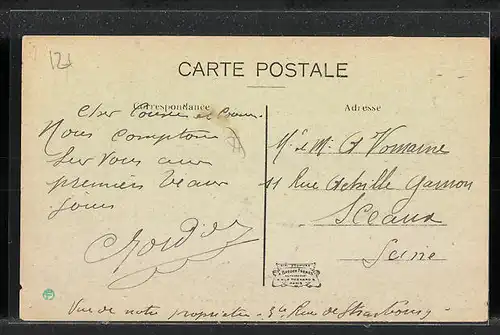 12d
CARTE POSTALE
Correspondance
Adresse
Cher Cousin et Cousine.
Nous comptons
sur vous aux
premiers beaux
jours
Mr & Me A Vomaine
11 Rue Achille Garnon
Sceaux
Seine
Vue de notre propriété - 34 Rue de Strasbourg -